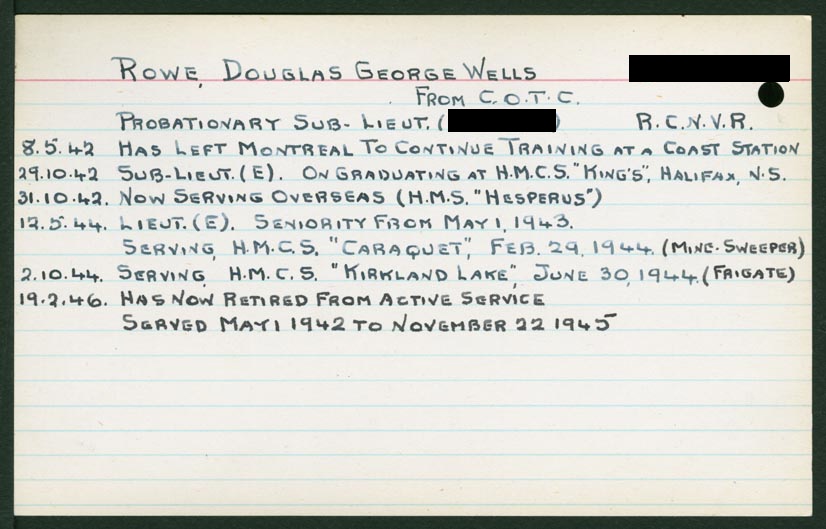 ROWE, DOUGLAS GEORGE WELLS
FROM C.O.T.C.
PROBATIONARY SUB-LIEUT. ( ) R.C.N.V.R.
8.5.42 HAS LEFT MONTREAL TO CONTINUE TRAINING AT A COAST STATION
29.10.42 SUB-LIEUT. (E). ON GRADUATING AT H.M.C.S. "KING'S", HALIFAX, N.S.
31.10.42. NOW SERVING OVERSEAS (H.M.S. "HESPERUS")
12.5.44. LIEUT. (E). SENIORITY FROM MAY 1, 1943.
SERVING, H.M.C.S. "CARAQUET", FEB. 29, 1944. (MINE-SWEEPER)
2.10.44. SERVING, H.M.C.S. "KIRKLAND LAKE", JUNE 30, 1944. (FRIGATE)
19.2.46. HAS NOW RETIRED FROM ACTIVE SERVICE
SERVED MAY 1 1942 TO NOVEMBER 22 1945